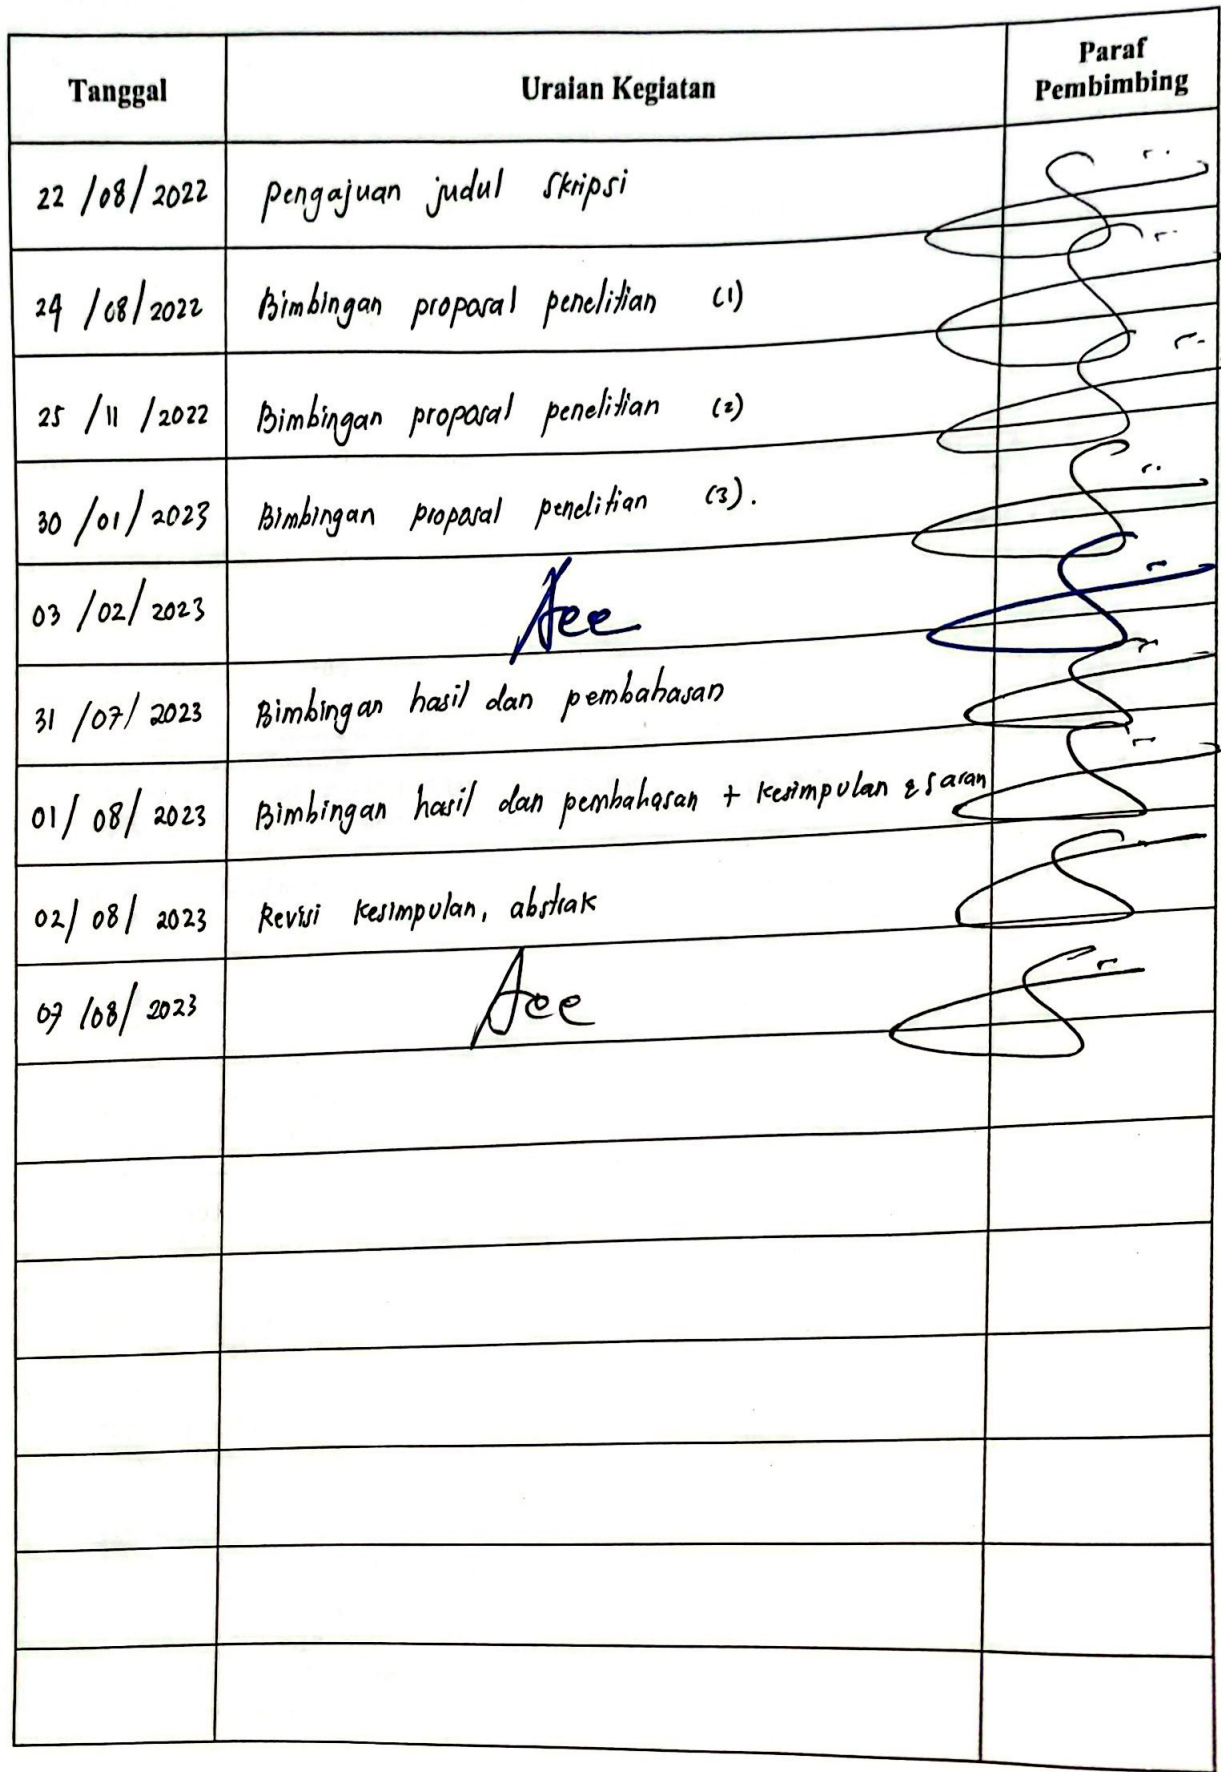 Tanggal Uraian Kegiatan Paraf Pembimbing
22/08/2022 pengajuan judul skripsi
24/08/2022 Bimbingan proposal penelitian (1)
25/11/2022 Bimbingan proposal penelitian (2)
30/01/2023 Bimbingan proposal penelitian (3).
03/02/2023 Acc
31/07/2023 Bimbingan hasil dan pembahasan
01/08/2023 Bimbingan hasil dan pembahasan + kesimpulan & saran
02/08/2023 Revisi kesimpulan, abstrak
07/08/2023 Acc